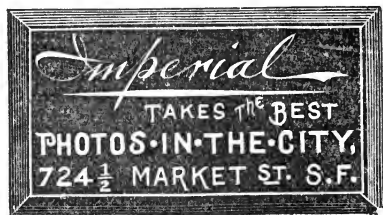 Imperial
TAKES THE BEST
PHOTOS·IN·THE·CITY,
724 1/2 MARKET ST. S.F.